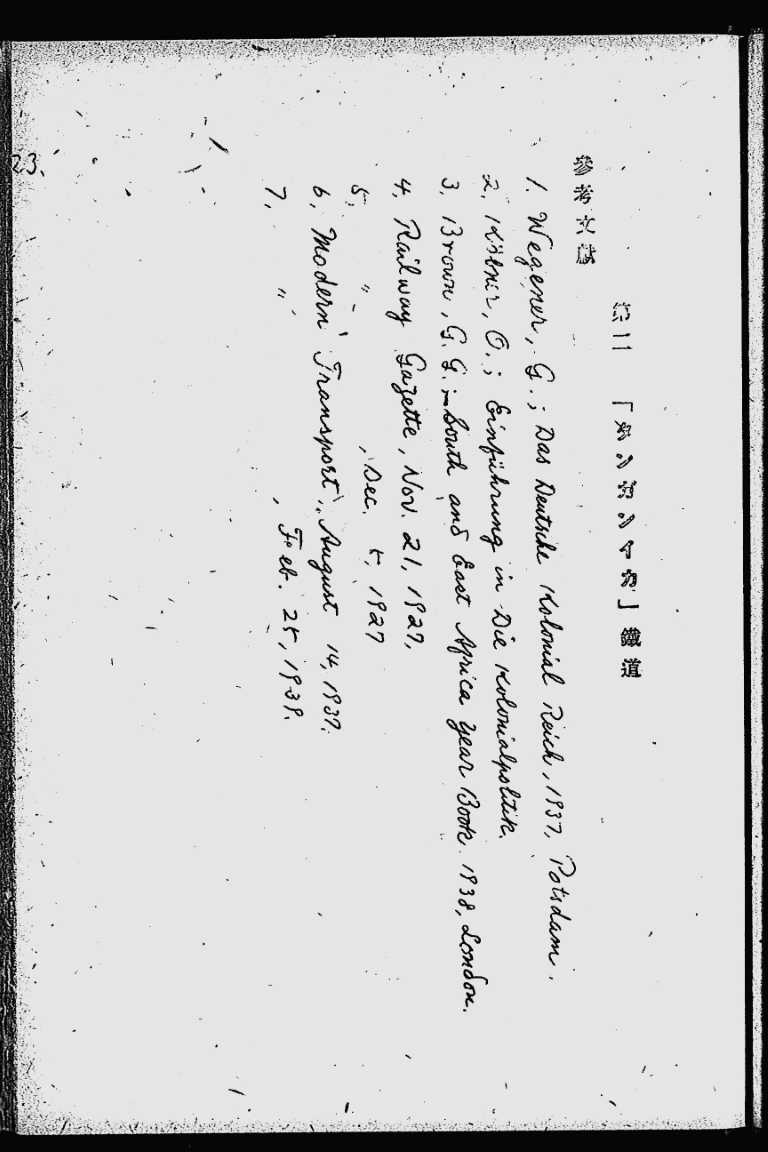 第二 「タンガンイカ」鐵道
參考文献
1. Wegener, G.; Das Deutsche Kolonial Reich, 1937, Potsdam.
2. Köbner, O.; Einführung in Die Kolonialpolitik.
3. Brown, G.G.; South and East Africa Year Book 1938, London.
4. Railway Gazette, Nov. 21, 1927.
5. 〃 , Dec. 5, 1927
6. Modern Transport, August 14, 1937.
7. 〃 , Feb. 25, 1939.
23.